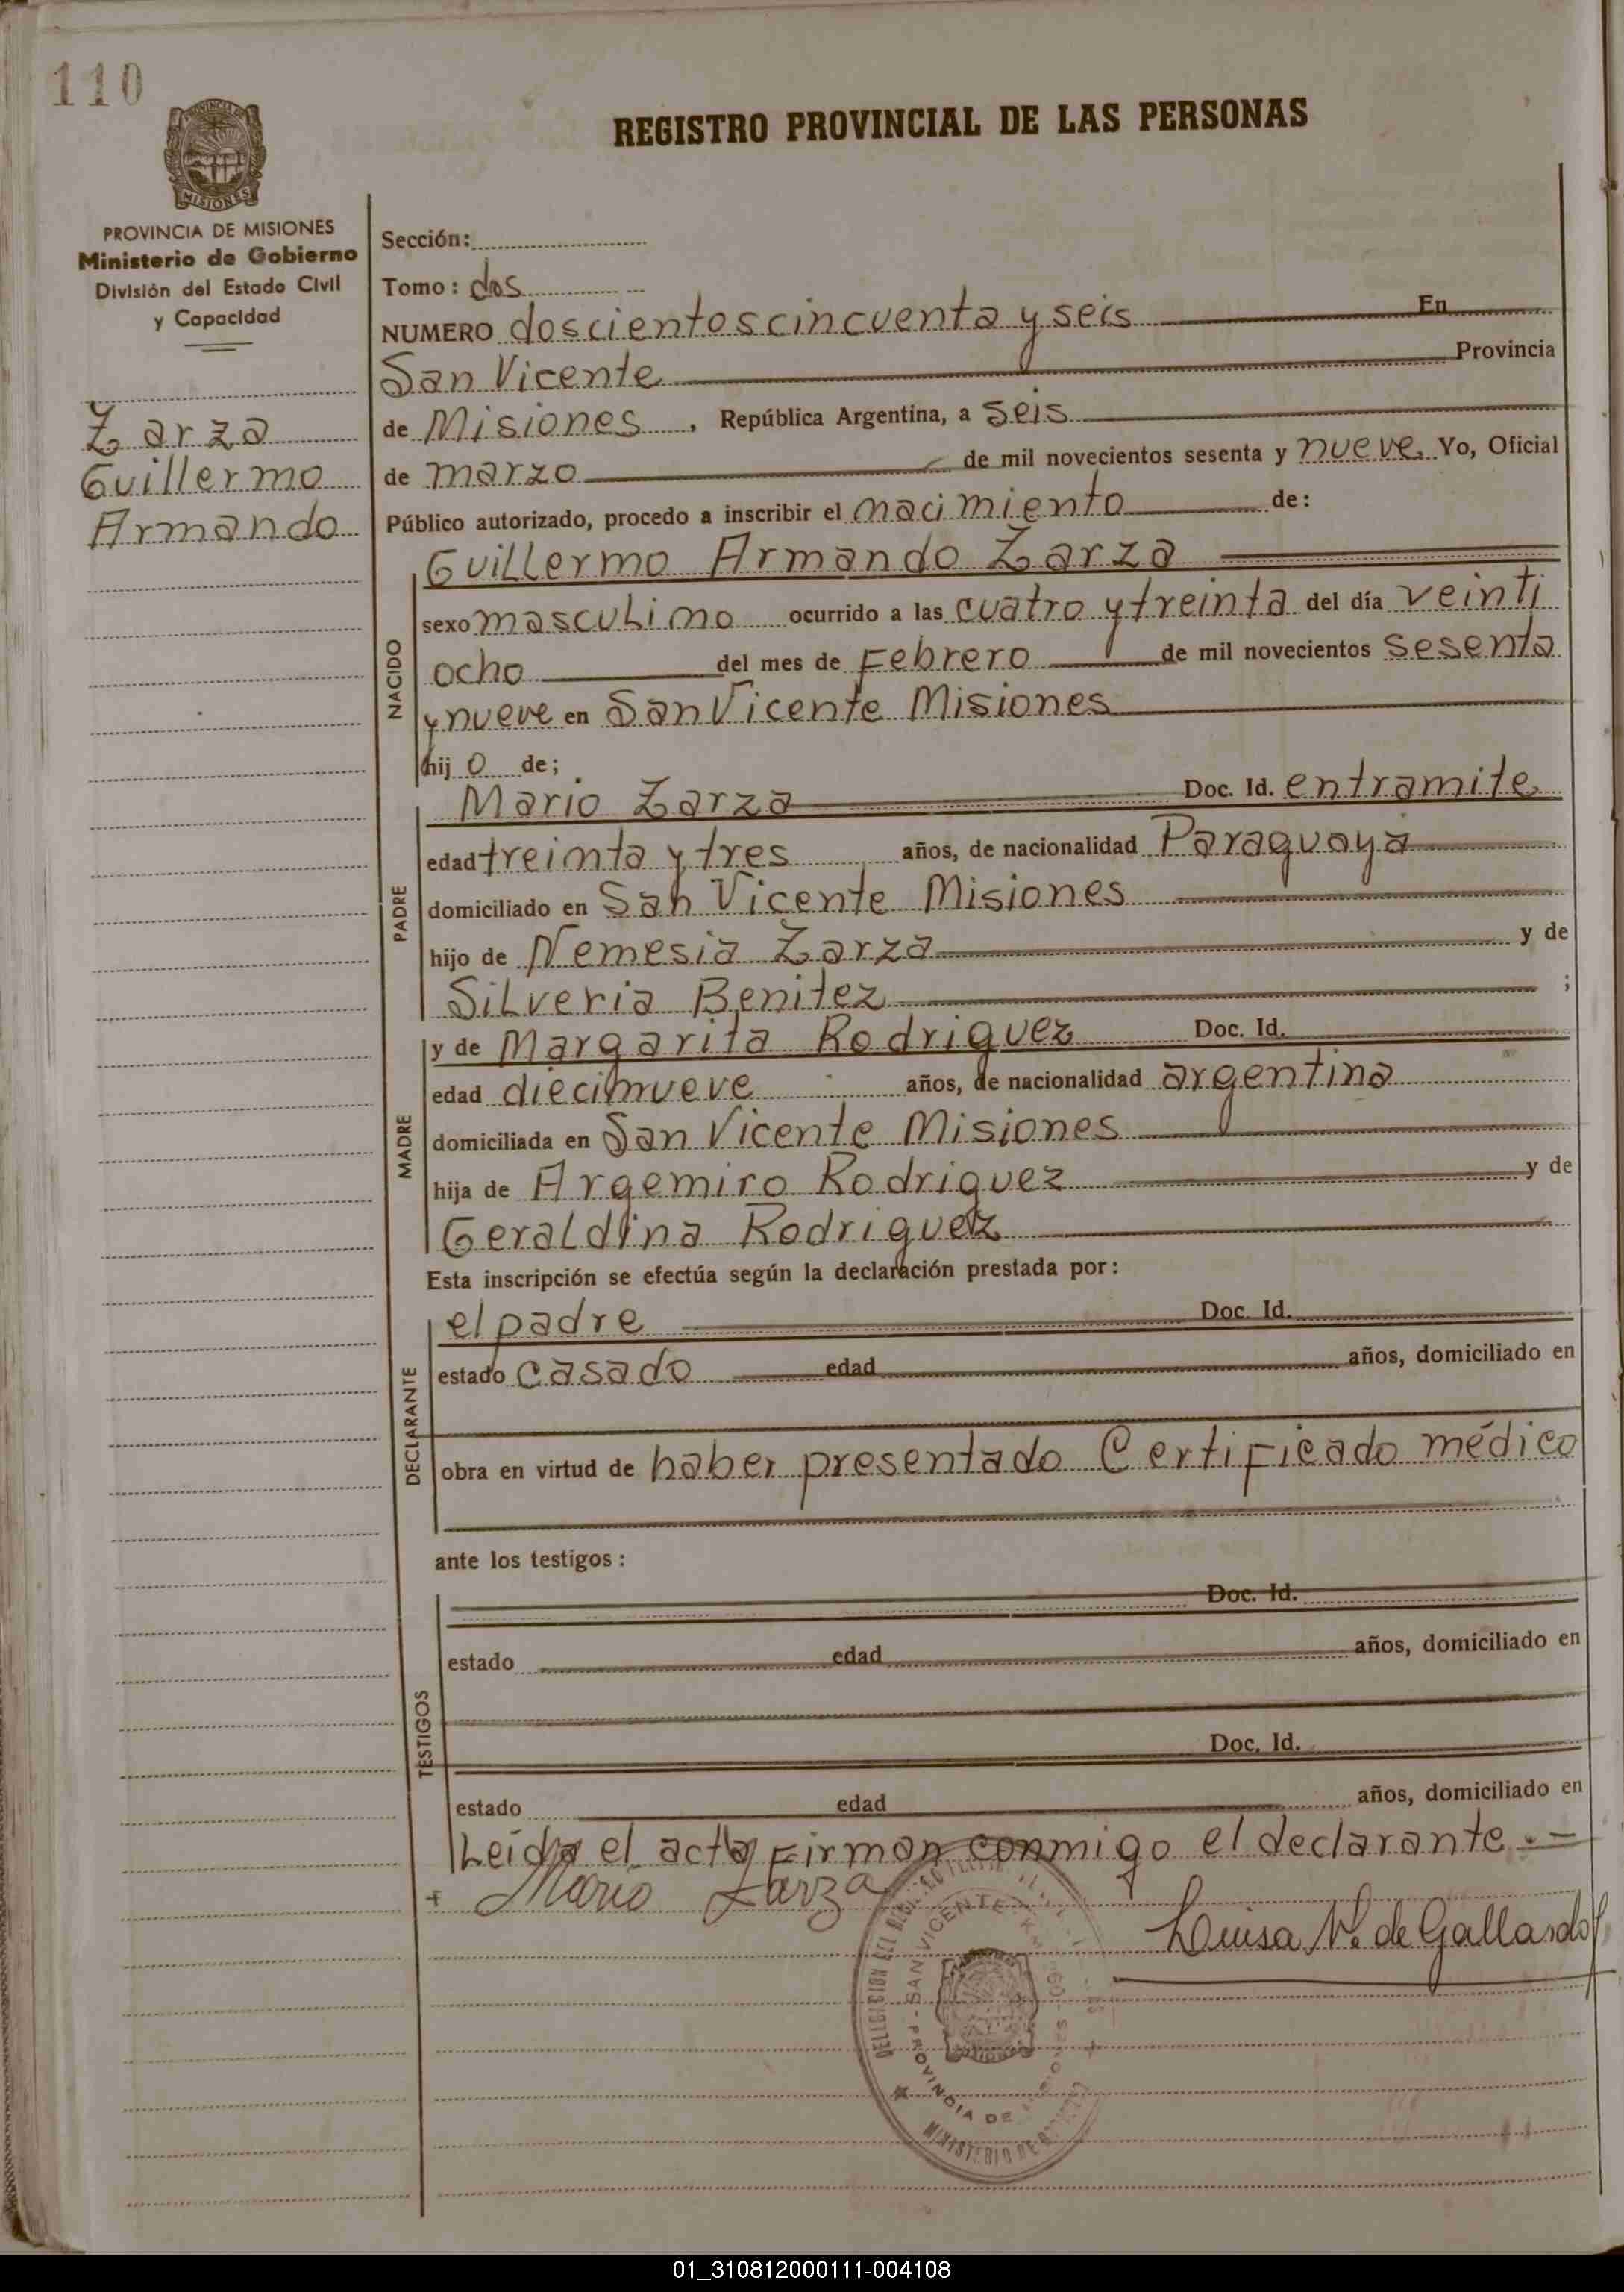 110
REGISTRO PROVINCIAL DE LAS PERSONAS
MISIONES
PROVINCIA DE MISIONES
Ministerio de Gobierno
División del Estado Civil
y Capacidad
Zarza
Guillermo
Armando
Sección:
Tomo: dos
NUMERO doscientos cincuenta y seis En
San Vicente Provincia
de Misiones, República Argentina, a seis
de marzo de mil novecientos sesenta y nueve. Yo, Oficial
Público autorizado, procedo a inscribir el nacimiento de:
NACIDO
Guillermo Armando Zarza
sexo masculino ocurrido a las cuatro y treinta del día veinti
ocho del mes de Febrero de mil novecientos sesenta
y nueve en San Vicente Misiones
hijo de;
PADRE
Mario Zarza Doc. Id. en tramite
edad treinta y tres años, de nacionalidad Paraguaya
domiciliado en San Vicente Misiones
hijo de Nemesia Zarza y de
Silveria Benitez ;
MADRE
y de Margarita Rodriguez Doc. Id.
edad diecinueve años, de nacionalidad argentina
domiciliada en San Vicente Misiones
hija de Argemiro Rodriguez y de
Geraldina Rodriguez
Esta inscripción se efectúa según la declaración prestada por:
DECLARANTE
el padre Doc. Id.
estado casado edad años, domiciliado en
obra en virtud de haber presentado Certificado médico
ante los testigos:
TESTIGOS
Doc. Id.
estado edad años, domiciliado en
Doc. Id.
estado edad años, domiciliado en
Leida el acta Firman conmigo el declarante.-
+ Mario Zarza
Luisa N. de Gallardo
SAN VICENTE
PROVINCIA DE
MINISTERIO DE
01_310812000111-004108